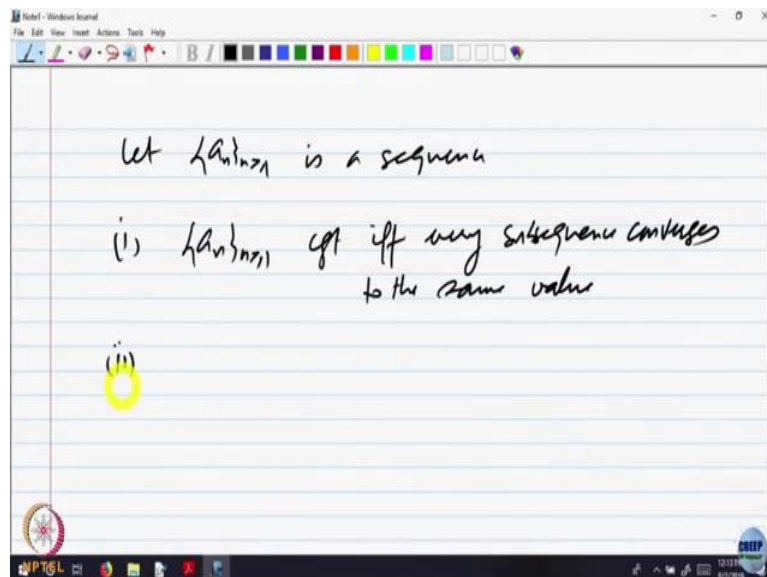 Note1 - Windows Journal
File Edit View Insert Actions Tools Help
B I
Let {an}n≥1 is a sequence
(i) {an}n≥1 cgt iff every subsequence converges
to the same value
(ii)
NPTEL
CDEEP